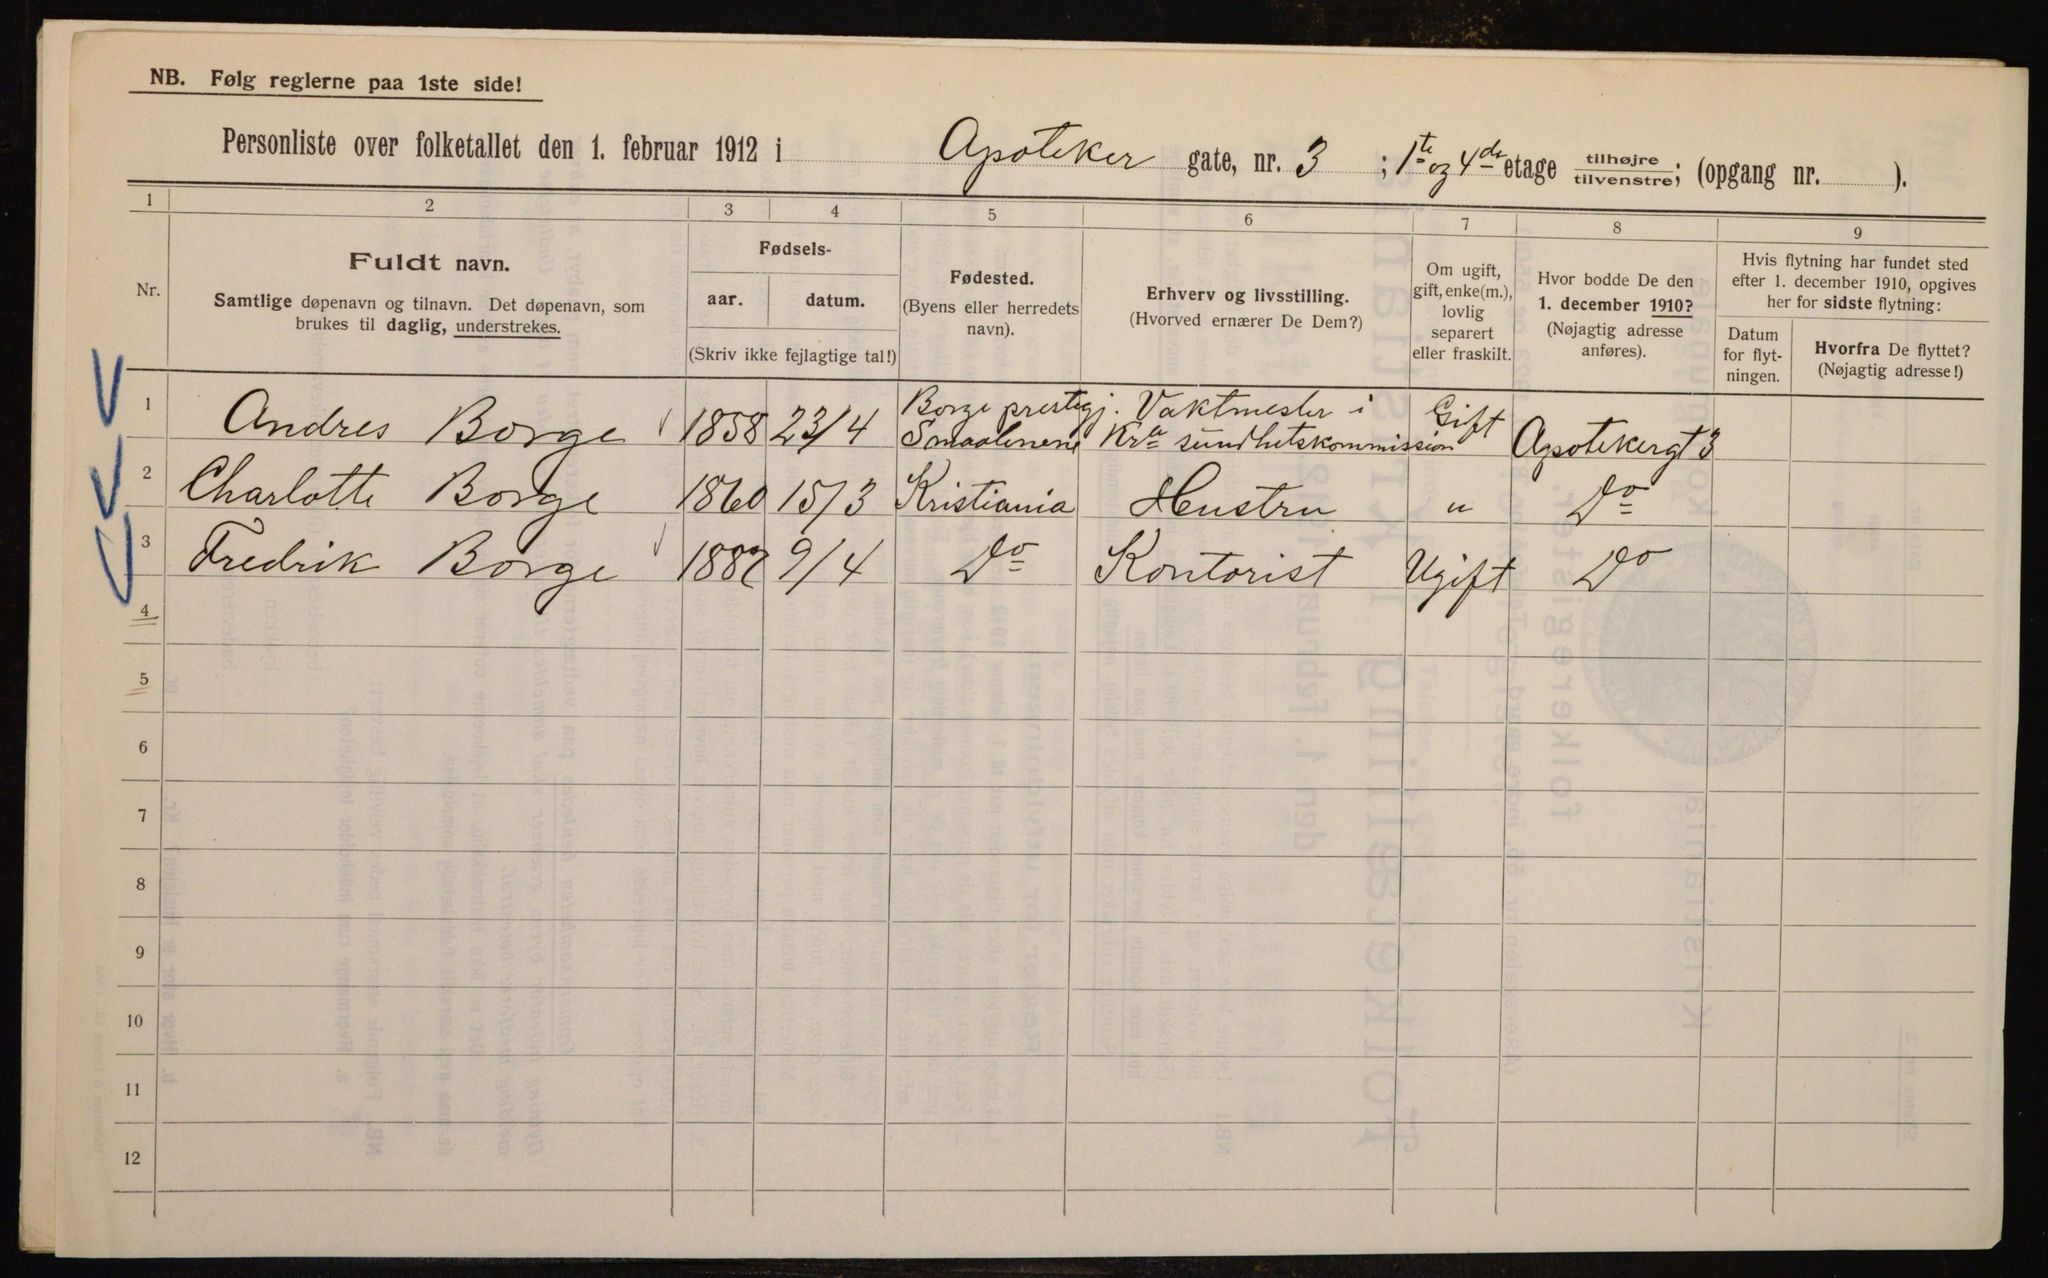 NB. Følg reglerne paa 1ste side!
Personliste over folketallet den 1. februar 1912 i Apoteker gate, nr. 3 ; 1ste og 4de etage tilhøjre tilvenstre; (opgang nr. ).
1 2 3 4 5 6 7 8 9
Nr.
Fuldt navn.
Samtlige døpenavn og tilnavn. Det døpenavn, som
brukes til daglig, understrekes.
Fødsels-
aar. datum.
(Skriv ikke fejlagtige tal!)
Fødested.
(Byens eller herredets
navn).
Erhverv og livsstilling.
(Hvorved ernærer De Dem?)
Om ugift,
gift, enke(m.),
lovlig
separert
eller fraskilt.
Hvor bodde De den
1. december 1910?
(Nøjagtig adresse
anføres).
Hvis flytning har fundet sted
efter 1. december 1910, opgives
her for sidste flytning:
Datum
for flyt-
ningen.
Hvorfra De flyttet?
(Nøjagtig adresse!)
1 Andres Borge 1858 23/4 Borge prestegj. Smaalenene Vaktmester i Kra sundhetskommission Gift Apotekergt 3
2 Charlotte Borge 1860 15/3 Kristiania Hustru " Do
3 Fredrik Borge 9/4 Do Kontorist Ugift Do
4
5
6
7
8
9
10
11
12